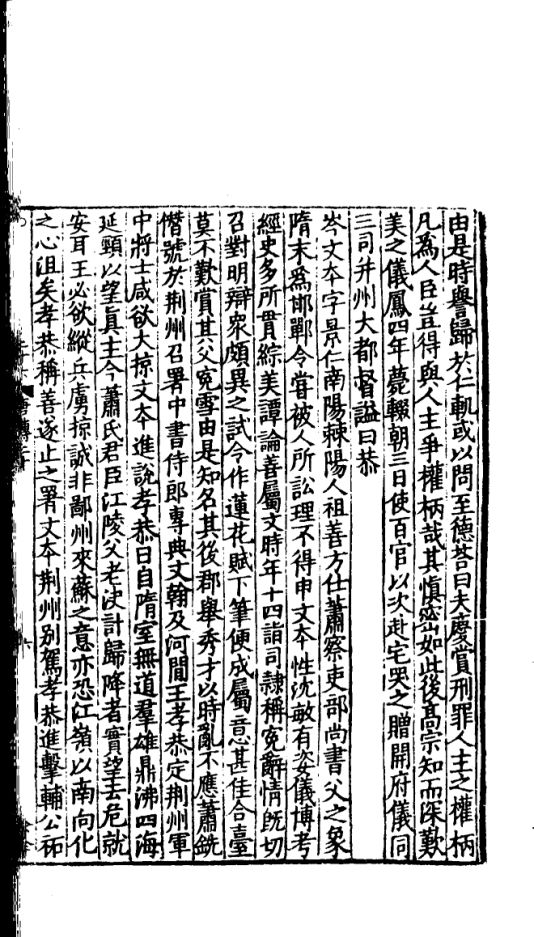 由是時譽歸於仁軌或以問至德荅曰夫慶賞刑罪人主之權柄
凡為人臣豈得與人主爭權柄哉其慎密如此後高宗知而深歎
美之儀鳳四年薨輟朝三日使百官以次赴宅哭之贈開府儀同
三司并州大都督謚曰恭
岑文本字景仁南陽棘陽人祖善方仕蕭察吏部尚書父之象
隋末為邯鄲令嘗被人所訟理不得申文本性沈敏有姿儀博考
經史多所貫綜美譚論善屬文時年十四詣司隸稱冤辭情旣切
召對明辯衆頗異之試令作蓮花賦下筆便成屬意甚佳合臺
莫不歎賞其父冤雪由是知名其後郡舉秀才以時亂不應蕭銑
僭號於荆州召署中書侍郎專典文翰及河間王孝恭定荆州軍
中將士咸欲大掠文本進說孝恭曰自隋室無道羣雄鼎沸四海
延頸以望真主今蕭氏君臣江陵父老决計歸降者實望去危就
安耳王必欲縱兵虜掠誠非鄙州來蘇之意亦恐江嶺以南向化
之心沮矣孝恭稱善遂止之署文本荆州別駕孝恭進擊輔公祏